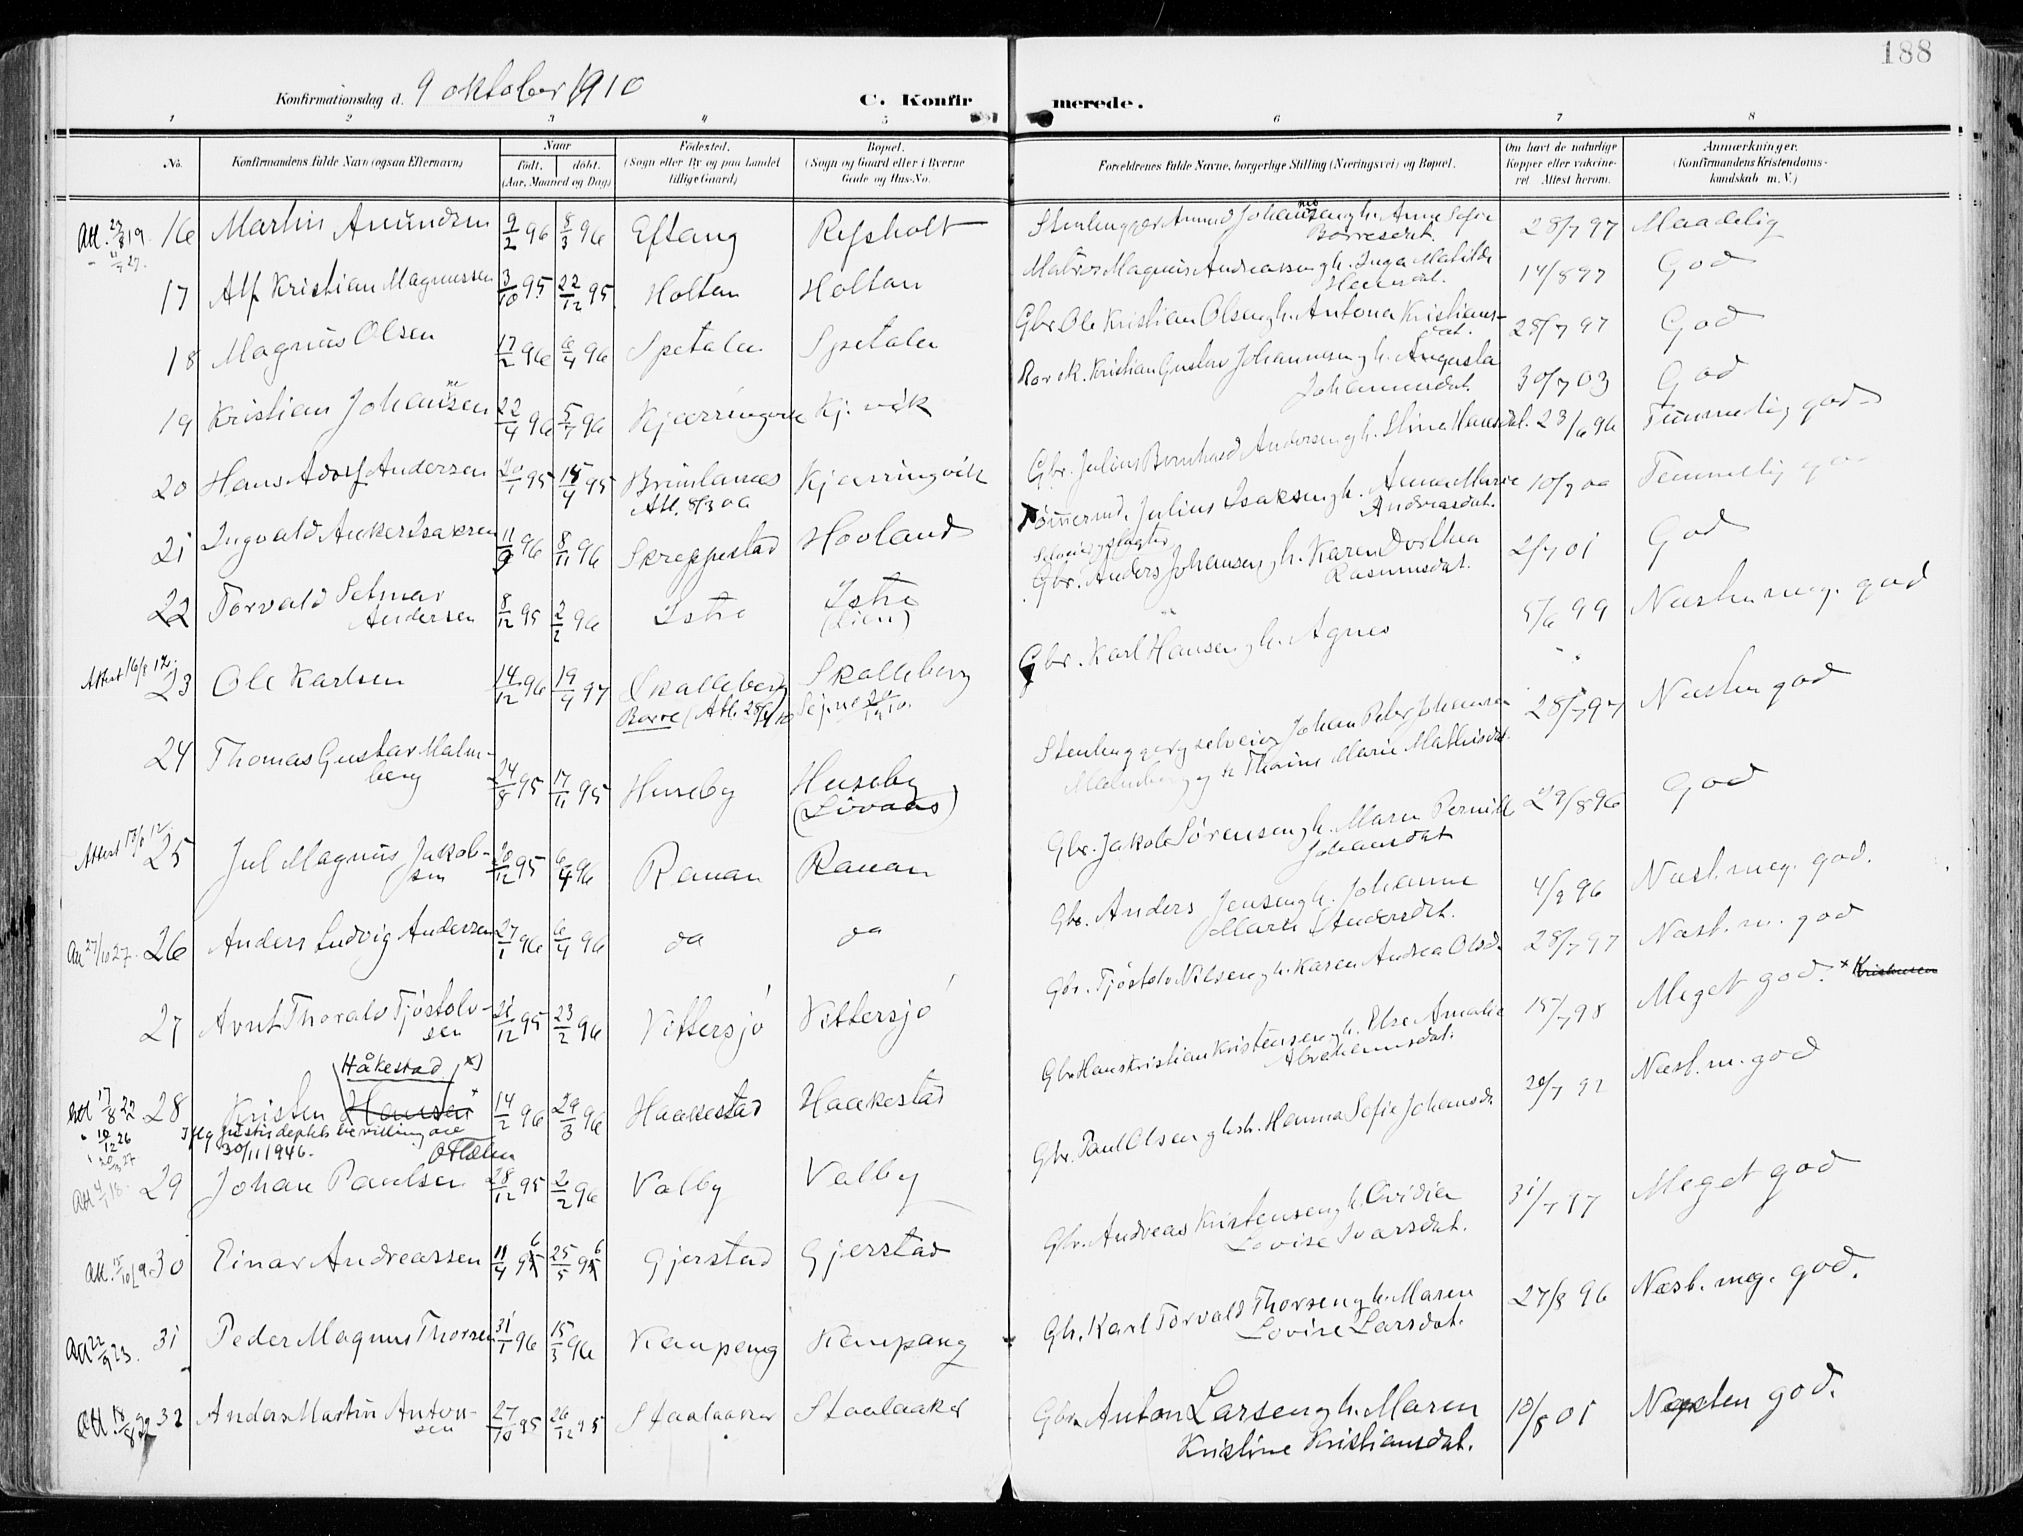 188
Konfirmationsdag d. 9 oktober 1910
C. Konfirmerede.
1 2 3 4 5 6 7 8
No. Konfirmandens fulde Navn (ogsaa Efternavn) Naar født. døbt. (Aar, Maaned og Dag) Fødested. (Sogn eller By og paa Landet tillige Gaard) Bopæl. (Sogn og Gaard eller i Byerne Gade og Hus-No. Forældrenes fulde Navne, borgerlige Stilling (Næringsvei) og Bopæl. Om havt de naturlige Kopper eller vakcineret Attest herom. Anmærkninger. (Konfirmandens Kristendomskundskab m. V.)
16 Martin Amundsen 9/2 96 8/3 96 Eftang Refsholt Stenhugger Amund Johannesen g. h. Anne Sofie Borresdat. 28/7 97 Maadelig
17 Alf Kristian Magnussen 3/10 95 22/12 95 Holtan Holtan Matros Magnus Andreassen g. h. Inga Matilde Hansdat. 14/8 97 God
18 Magnus Olsen 17/2 96 6/4 96 Spetalen Spetalen Gbr. Ole Kristian Olsen g. h. Antona Kristiansdat. 28/7 97 God
19 Kristian Johannesen 22/4 96 5/7 96 Kjærringvik Kj. vik Kristian Gustav Johannesen g. h. Augusta Johannesdat. 30/7 03 God
20 Hans Adolf Andersen 20/1 95 15/4 95 Brunlanes Att. 8/3 00 Kjærringvik Gbr. Julius Bernhard Andersen g. h. Stina Hansdat. 23/6 96 Temmelig god
21 Ingvald Anker Isaksen 11/9 96 8/11 96 Skreppestad Hovland Tømmermd. Julius Isaksen g. h. Anne Marie Andreasdat. 10/7 00 Temmelig god
22 Torvald Selmar Andersen 8/12 95 2/2 96 Istre Istre (Lien) Selveier, slagter Gbr. Anders Johansen g. h. Karen Dorthea Rasmusdat. 2/7 01 God
Attest 16/8 12. 23 Ole Karlsen 14/12 96 19/4 97 Skalleberg Skalleberg Gbr. Karl Hansen g. h. Agnes 5/6 99 Næsten meg. god
24 Thomas Gustav Malmberg 24/8 95 17/11 95 Huseby Huseby (Lövaas) Stenhugger g selveier Johan Peter Johansen Malmberg g h Thorine Marie Mathisdat. 28/7 97 Næsten god
Attest 25 Jul Magnus Jakobsen 20/12 95 6/4 96 Rauan Rauan Gbr. Jakob Sørensen g. h. Maren Pernille Johansdat 29/8 96 God
Att 27/10 27. 26 Anders Ludvig Andersen 27/1 96 6/4 96 do do Gbr. Anders Jensen g. h. Johanne Marie Andersdat. 4/9 96 Næst. meg. god.
27 Arnt Thorald Tjöstolvsen 21/12 95 23/2 96 Vittersjö Vittersjö Gbr. Tjöstolv Nilsen g. h. Karen Andrea Olsd. 28/7 97 Næst. m. god
Håkestad x)
Att 17/8 22 28 Kristen Hansen x 14/2 96 29/3 96 Haakestad Haakestad Gbr Hans Kristian Kristensen g. h. Else Amalie Abrahamsdat. 15/7 98 Meget god. x Kristensen
Iflg justisdeptets bevilling av 30/11 1946.
29 Johan Paulsen 28/12 95 2/2 96 Valby Valby Gbr. Paul Olsen g h. Hanna Sofie Johansd. 20/7 92 Næst. m. god
Att. 15/10 19. 30 Einar Andreassen 11/4 96 25/5 96 Gjerstad Gjerstad Gbr. Andreas Kristensen g. h. Ovidia Lovise Ivarsdat. 31/7 97 Meget god
Att 22/9 23. 31 Peder Magnus Thorsen 31/1 96 15/3 96 Kaupang Kaupang Gbr. Karl Torvald Thorsen g. h. Maren Lovise Larsdat. 27/8 96 Næst. meg. god.
Att. 18/8 22 32 Anders Martin Antonsen 27/10 95 26/12 95 Staalaaker Staalaaker Gbr. Anton Larsen g. h. Maren Kristine Kristiansdat. 10/8 01 Næsten god.